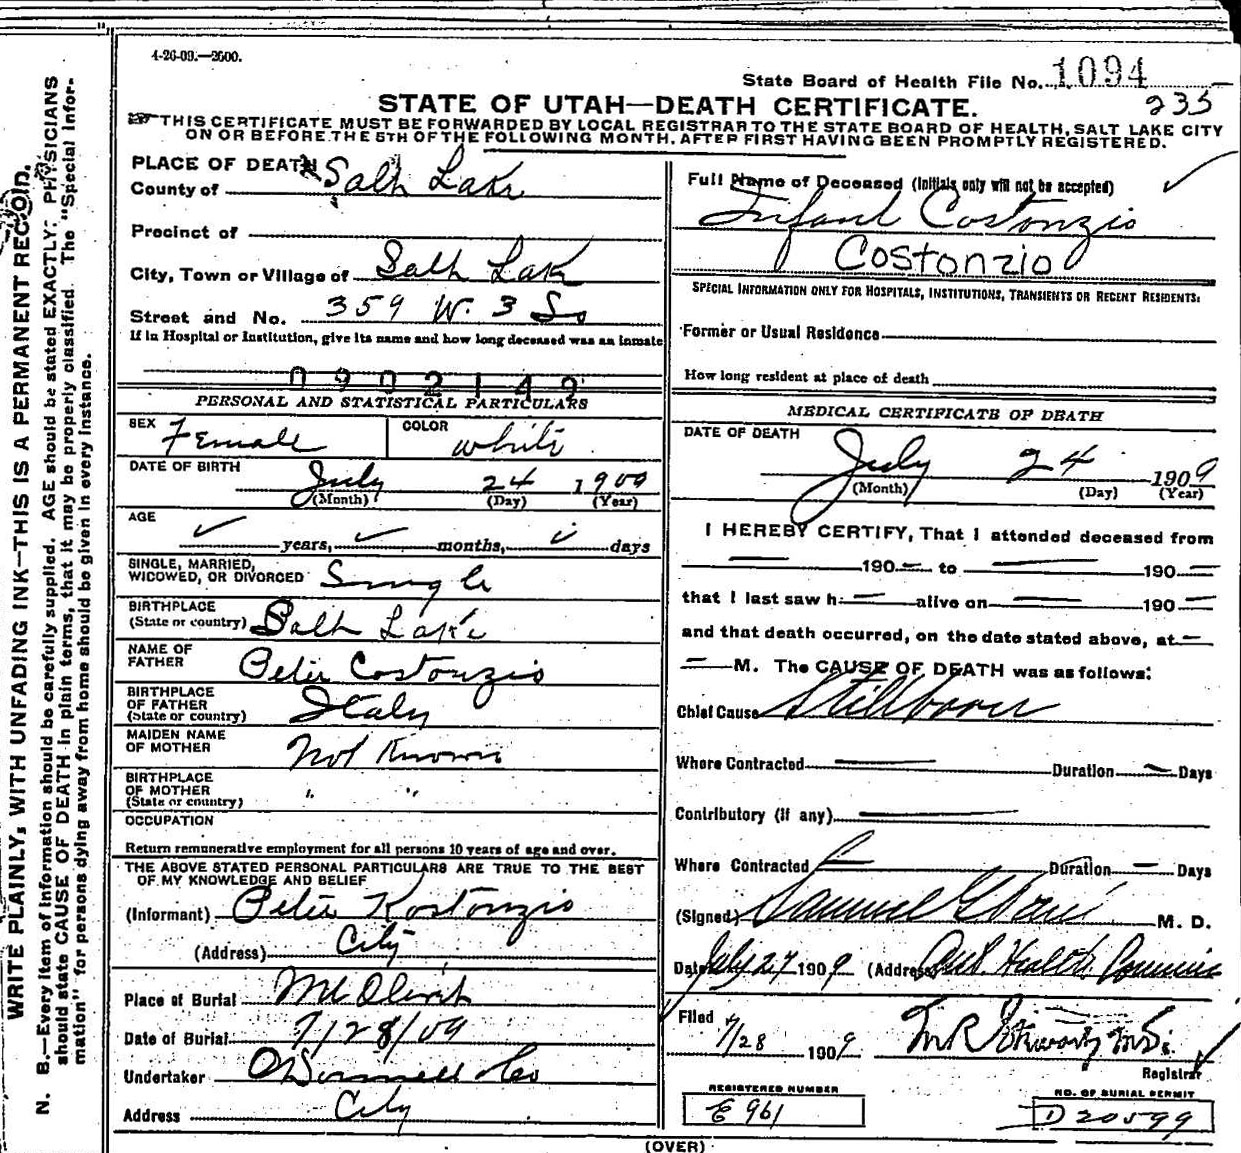 4-26-09.—2500.
State Board of Health File No. 1094
STATE OF UTAH—DEATH CERTIFICATE.
235
THIS CERTIFICATE MUST BE FORWARDED BY LOCAL REGISTRAR TO THE STATE BOARD OF HEALTH, SALT LAKE CITY
ON OR BEFORE THE 5TH OF THE FOLLOWING MONTH, AFTER FIRST HAVING BEEN PROMPTLY REGISTERED.
PLACE OF DEATH
County of Salt Lake
Precinct of
City, Town or Village of Salt Lake
Street and No. 359 W. 3 So
If in Hospital or Institution, give its name and how long deceased was an inmate
0902149
PERSONAL AND STATISTICAL PARTICULARS
SEX Female COLOR white
DATE OF BIRTH July 24 1909
(Month) (Day) (Year)
AGE
years, months, days
SINGLE, MARRIED,
WIDOWED, OR DIVORCED Single
BIRTHPLACE
(State or country) Salt Lake
NAME OF
FATHER Peter Costonzio
BIRTHPLACE
OF FATHER
(State or country) Italy
MAIDEN NAME
OF MOTHER Not Known
BIRTHPLACE
OF MOTHER
(State or country) " "
OCCUPATION
Return remunerative employment for all persons 10 years of age and over.
THE ABOVE STATED PERSONAL PARTICULARS ARE TRUE TO THE BEST
OF MY KNOWLEDGE AND BELIEF
(Informant) Peter Kostonzio
(Address) City
Place of Burial Mt Olivet
Date of Burial 7/28/09
Undertaker O'Donnell & Co
Address City
Full Name of Deceased (Initials only will not be accepted)
Infant Costonzio
Costonzio
SPECIAL INFORMATION ONLY FOR HOSPITALS, INSTITUTIONS, TRANSIENTS OR RECENT RESIDENTS:
Former or Usual Residence
How long resident at place of death
MEDICAL CERTIFICATE OF DEATH
DATE OF DEATH
July 24 1909
(Month) (Day) (Year)
I HEREBY CERTIFY, That I attended deceased from
190 — to — 190 —
that I last saw h — alive on — 190 —
and that death occurred, on the date stated above, at —
— M. The CAUSE OF DEATH was as follows:
Chief Cause Stillborn
Where Contracted — Duration — Days
Contributory (if any) —
Where Contracted — Duration — Days
(Signed) Samuel G. M. D.
Date July 27 1909 (Address) Health
Filed
7/28 1909 M.D.
Registrar
REGISTERED NUMBER
E 961
NO. OF BURIAL PERMIT
D 20599
(OVER)
WRITE PLAINLY, WITH UNFADING INK—THIS IS A PERMANENT RECORD.
N. B.—Every item of information should be carefully supplied. AGE should be stated EXACTLY. PHYSICIANS
should state CAUSE OF DEATH in plain terms, that it may be properly classified. The "Special Infor-
mation" for persons dying away from home should be given in every instance.